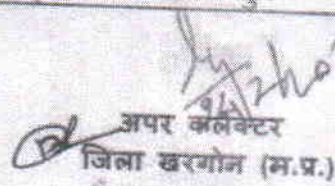 अपर कलेक्टर
जिला खरगोन (म.प्र.)